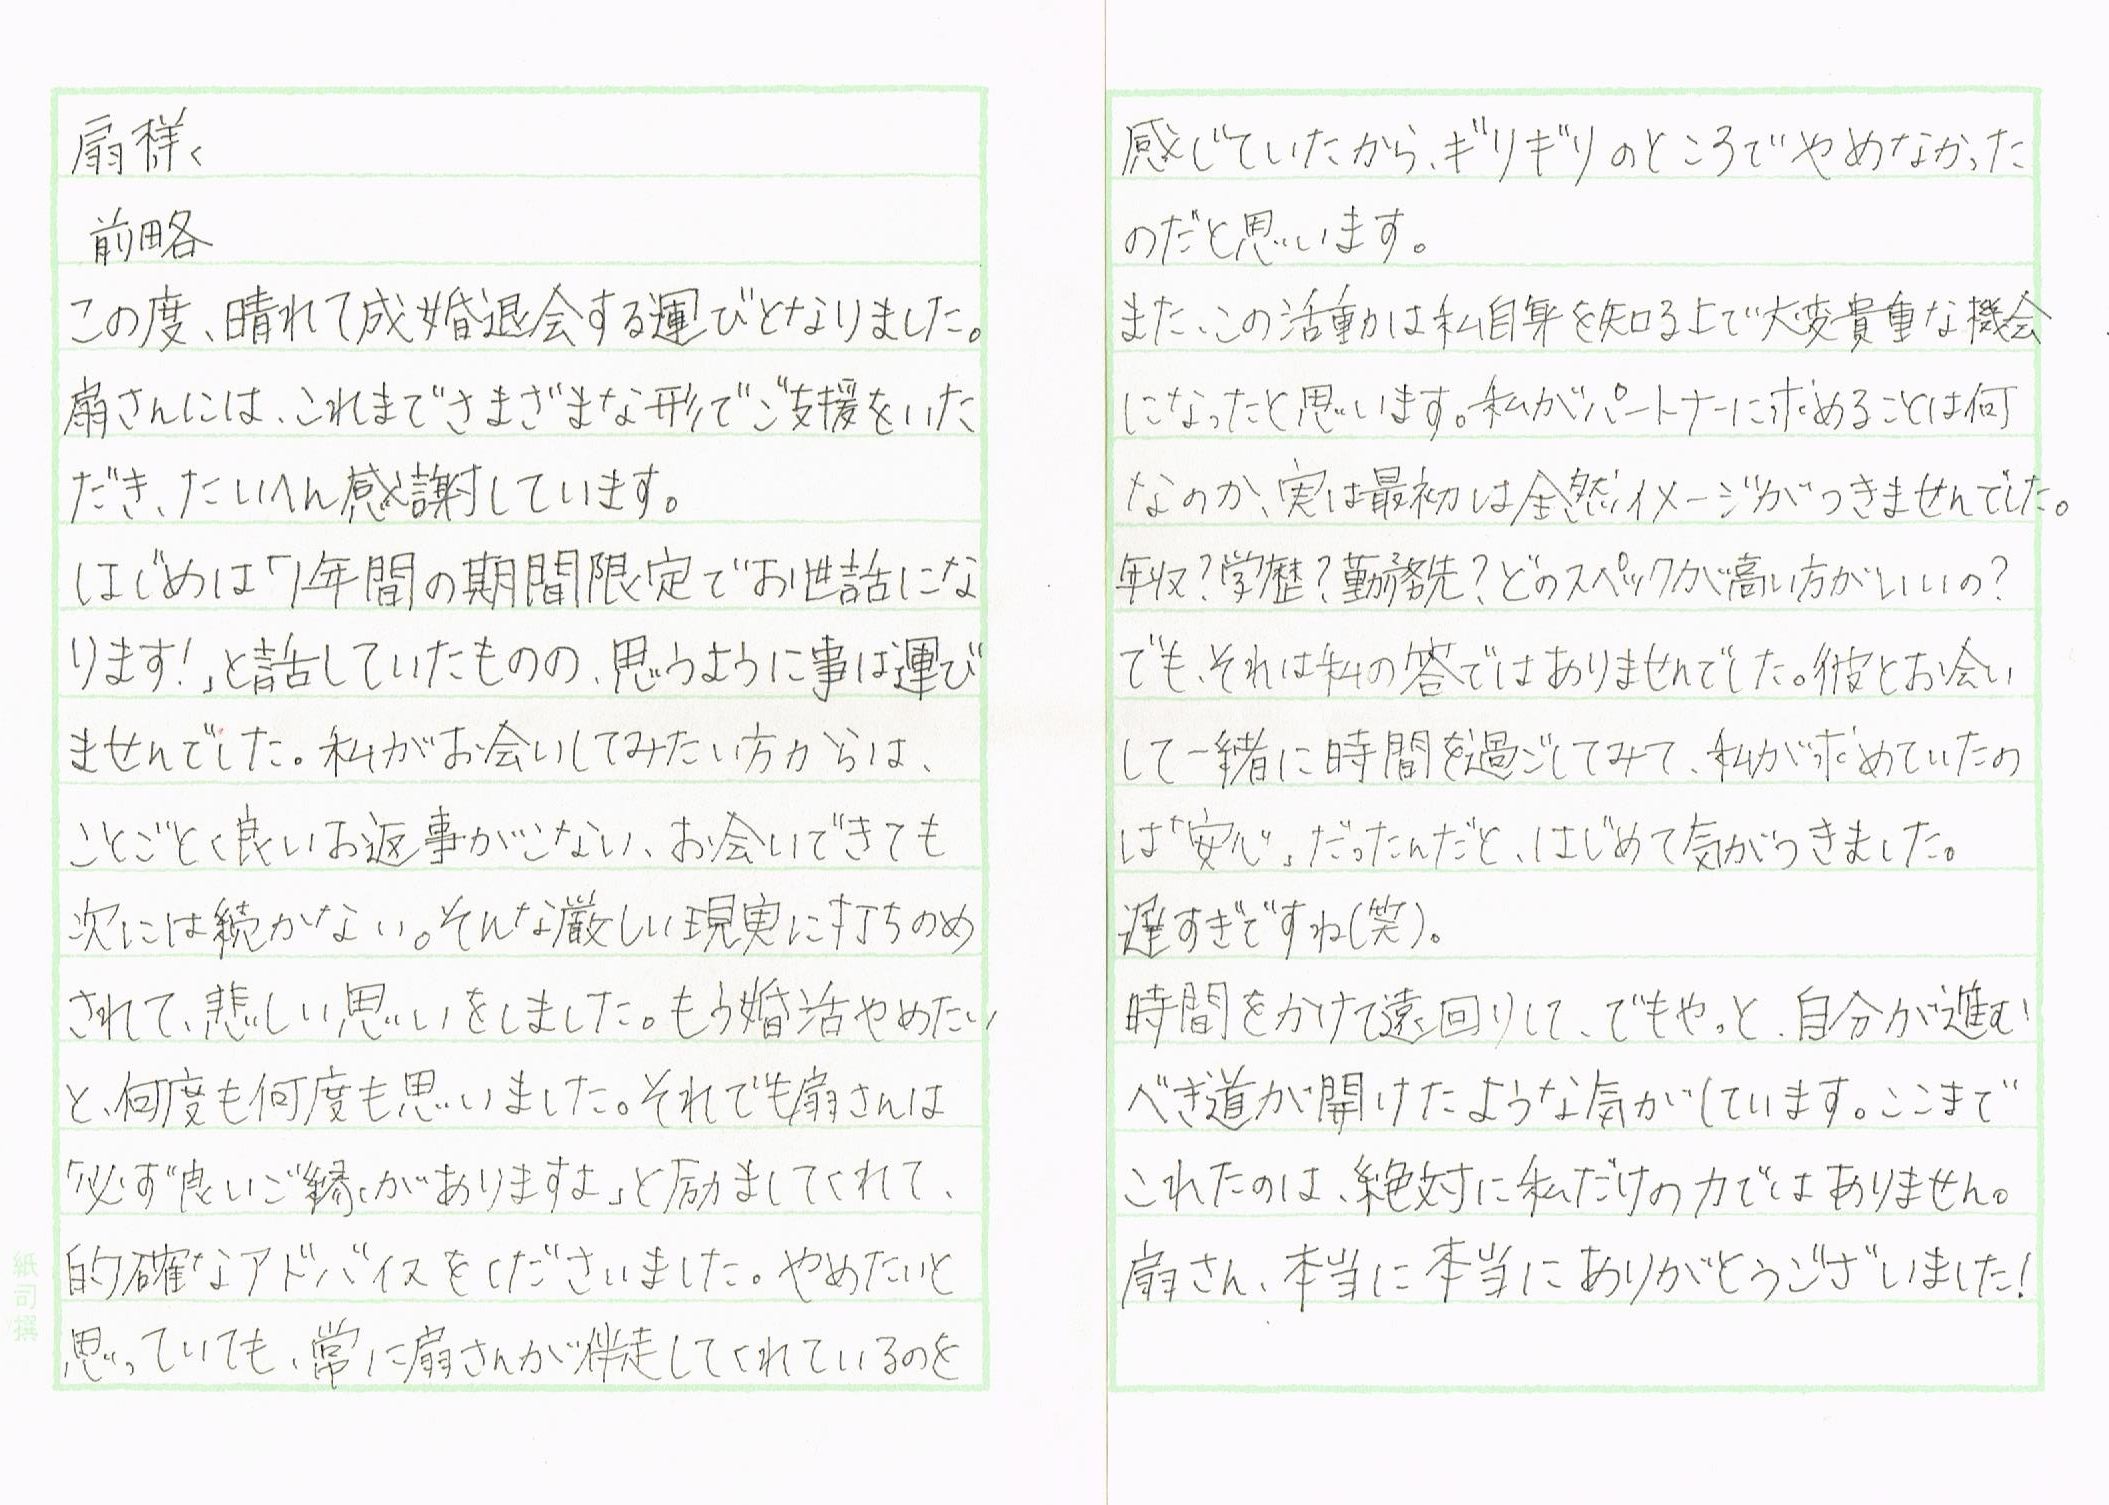 扇様
前略
この度、晴れて成婚退会する運びとなりました。
扇さんには、これまでさまざまな形でご支援をいた
だき、たいへん感謝しています。
はじめは「1年間の期間限定でお世話にな
ります!」と話していたものの、思うように事は運び
ませんでした。私がお会いしてみたい方からは、
ことごとく良いお返事がこない、お会いできても
次には続かない。そんな厳しい現実に打ちのめ
されて、悲しい思いをしました。もう婚活やめたい
と、何度も何度も思いました。それでも扇さんは
「必ず良いご縁がありますよ」と励ましてくれて、
的確なアドバイスをくださいました。やめたいと
思っていても、常に扇さんが伴走してくれているのを
紙司撰
感じていたから、ギリギリのところでやめなかった
のだと思います。
また、この活動は私自身を知る上で大変貴重な機会
になったと思います。私がパートナーに求めることは何
なのか、実は最初は全然イメージがつきませんでした。
年収?学歴?勤務先?どのスペックが高い方がいいの?
でも、それは私の答ではありませんでした。彼とお会い
して一緒に時間を過ごしてみて、私が求めていたの
は「安心」だったんだと、はじめて気がつきました。
遅すぎですね(笑)。
時間をかけて遠回りして、でもやっと、自分が進む
べき道が開けたような気がしています。ここまで
これたのは、絶対に私だけの力ではありません。
扇さん、本当に本当にありがとうございました!